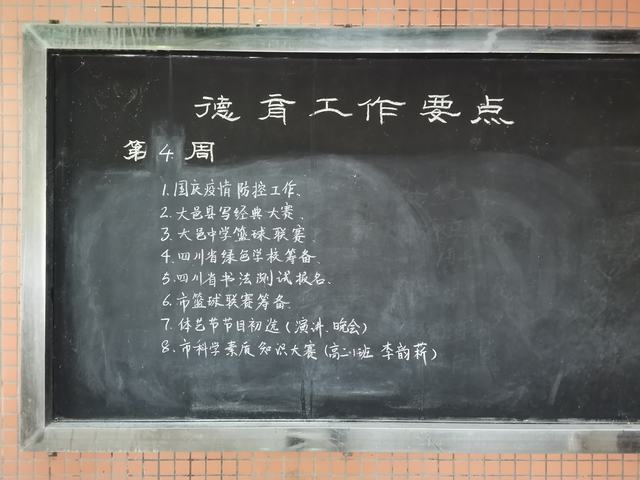 德育工作要点
第4周
1.国庆疫情防控工作.
2.大邑县写经典大赛.
3.大邑中学篮球联赛.
4.四川省绿色学校筹备.
5.四川省书法测试报名.
6.市篮球联赛筹备.
7.体艺节节目初选(演讲.晚会)
8.市科学素质知识大赛(高二1班 李韵薪)